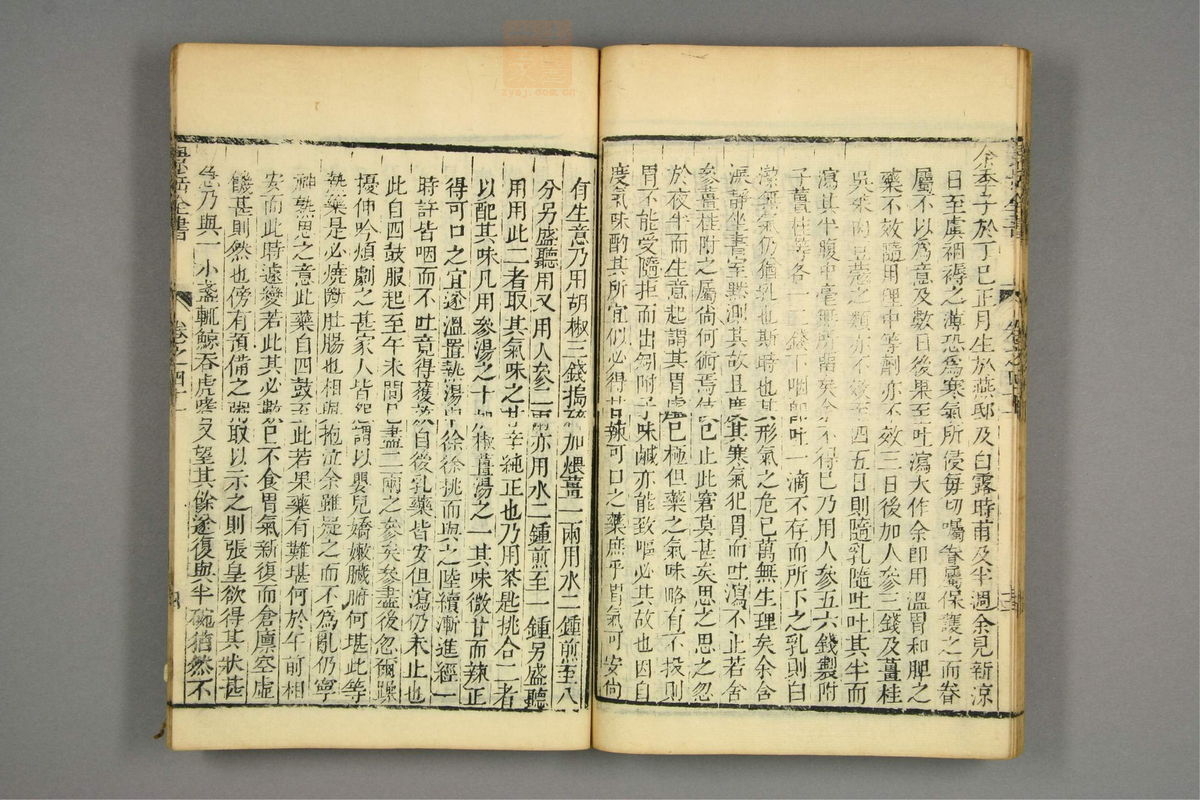 余季子於丁巳正月生於燕邸及白露時甫及半週余見新涼
日至虞裀褥之薄恐爲寒氣所侵每切囑眷屬保護之而眷
屬不以爲意及數日後果至吐瀉大作余卽用溫胃和脾之
藥不效隨用理中等劑亦不效三日後加人參三錢及薑桂
吳茱肉豆蔻之類亦不效至四五日則隨乳隨吐吐其半而
瀉其半腹中毫無所留矣余不得已乃用人參五六錢製附
子薑桂等各一二錢下咽卽吐一滴不存而所下之乳則白
潔無氣仍猶乳也斯時也其形氣之危已萬無生理矣余含
淚靜坐書室默測其故且度其寒氣犯胃而吐瀉不止若舍
參薑桂附之屬尚何術焉伎已止此窘莫甚矣思之思之忽
於夜半而生意起謂其胃虛已極但藥之氣味略有不投則
胃不能受隨拒而出矧附子味鹹亦能致嘔必其故也因自
度氣味酌其所宜似必得甘辣可口之藥庶乎胃氣可安尚
有生意乃用胡椒三錢搗碎加煨薑一兩用水二鍾煎至八
分另盛聽用又用人參二兩亦用水二鍾煎至一鍾另盛聽
用用此二者取其氣味之甘辛純正也乃用茶匙挑合二者
以配其味凡用參湯之十加椒薑湯之一其味微甘而辣正
得可口之宜遂溫置熱湯中徐徐挑而與之陸續漸進經一
時許皆咽而不吐竟得獲效自後乳藥皆安但瀉仍未止也
此自四鼓服起至午未間已盡二兩之參矣參盡後忽爾躁
擾伸吟煩劇之甚家人皆怨謂以嬰兒嬌嫩臟腑何堪此等
熱藥是必燒斷肚腸也相與抱泣余雖疑之而不爲亂仍寧
神熟思之意此藥自四鼓至此若果藥有難堪何於午前相
安而此時遽變若此其必數日不食胃氣新復而倉廩空虛
饑甚則然也傍有預備之粥取以示之則張皇欲得其狀甚
急乃與一小盞輒鯨吞虎嗥又望其餘遂復與半碗猶然不
景岳全書
卷之四十一